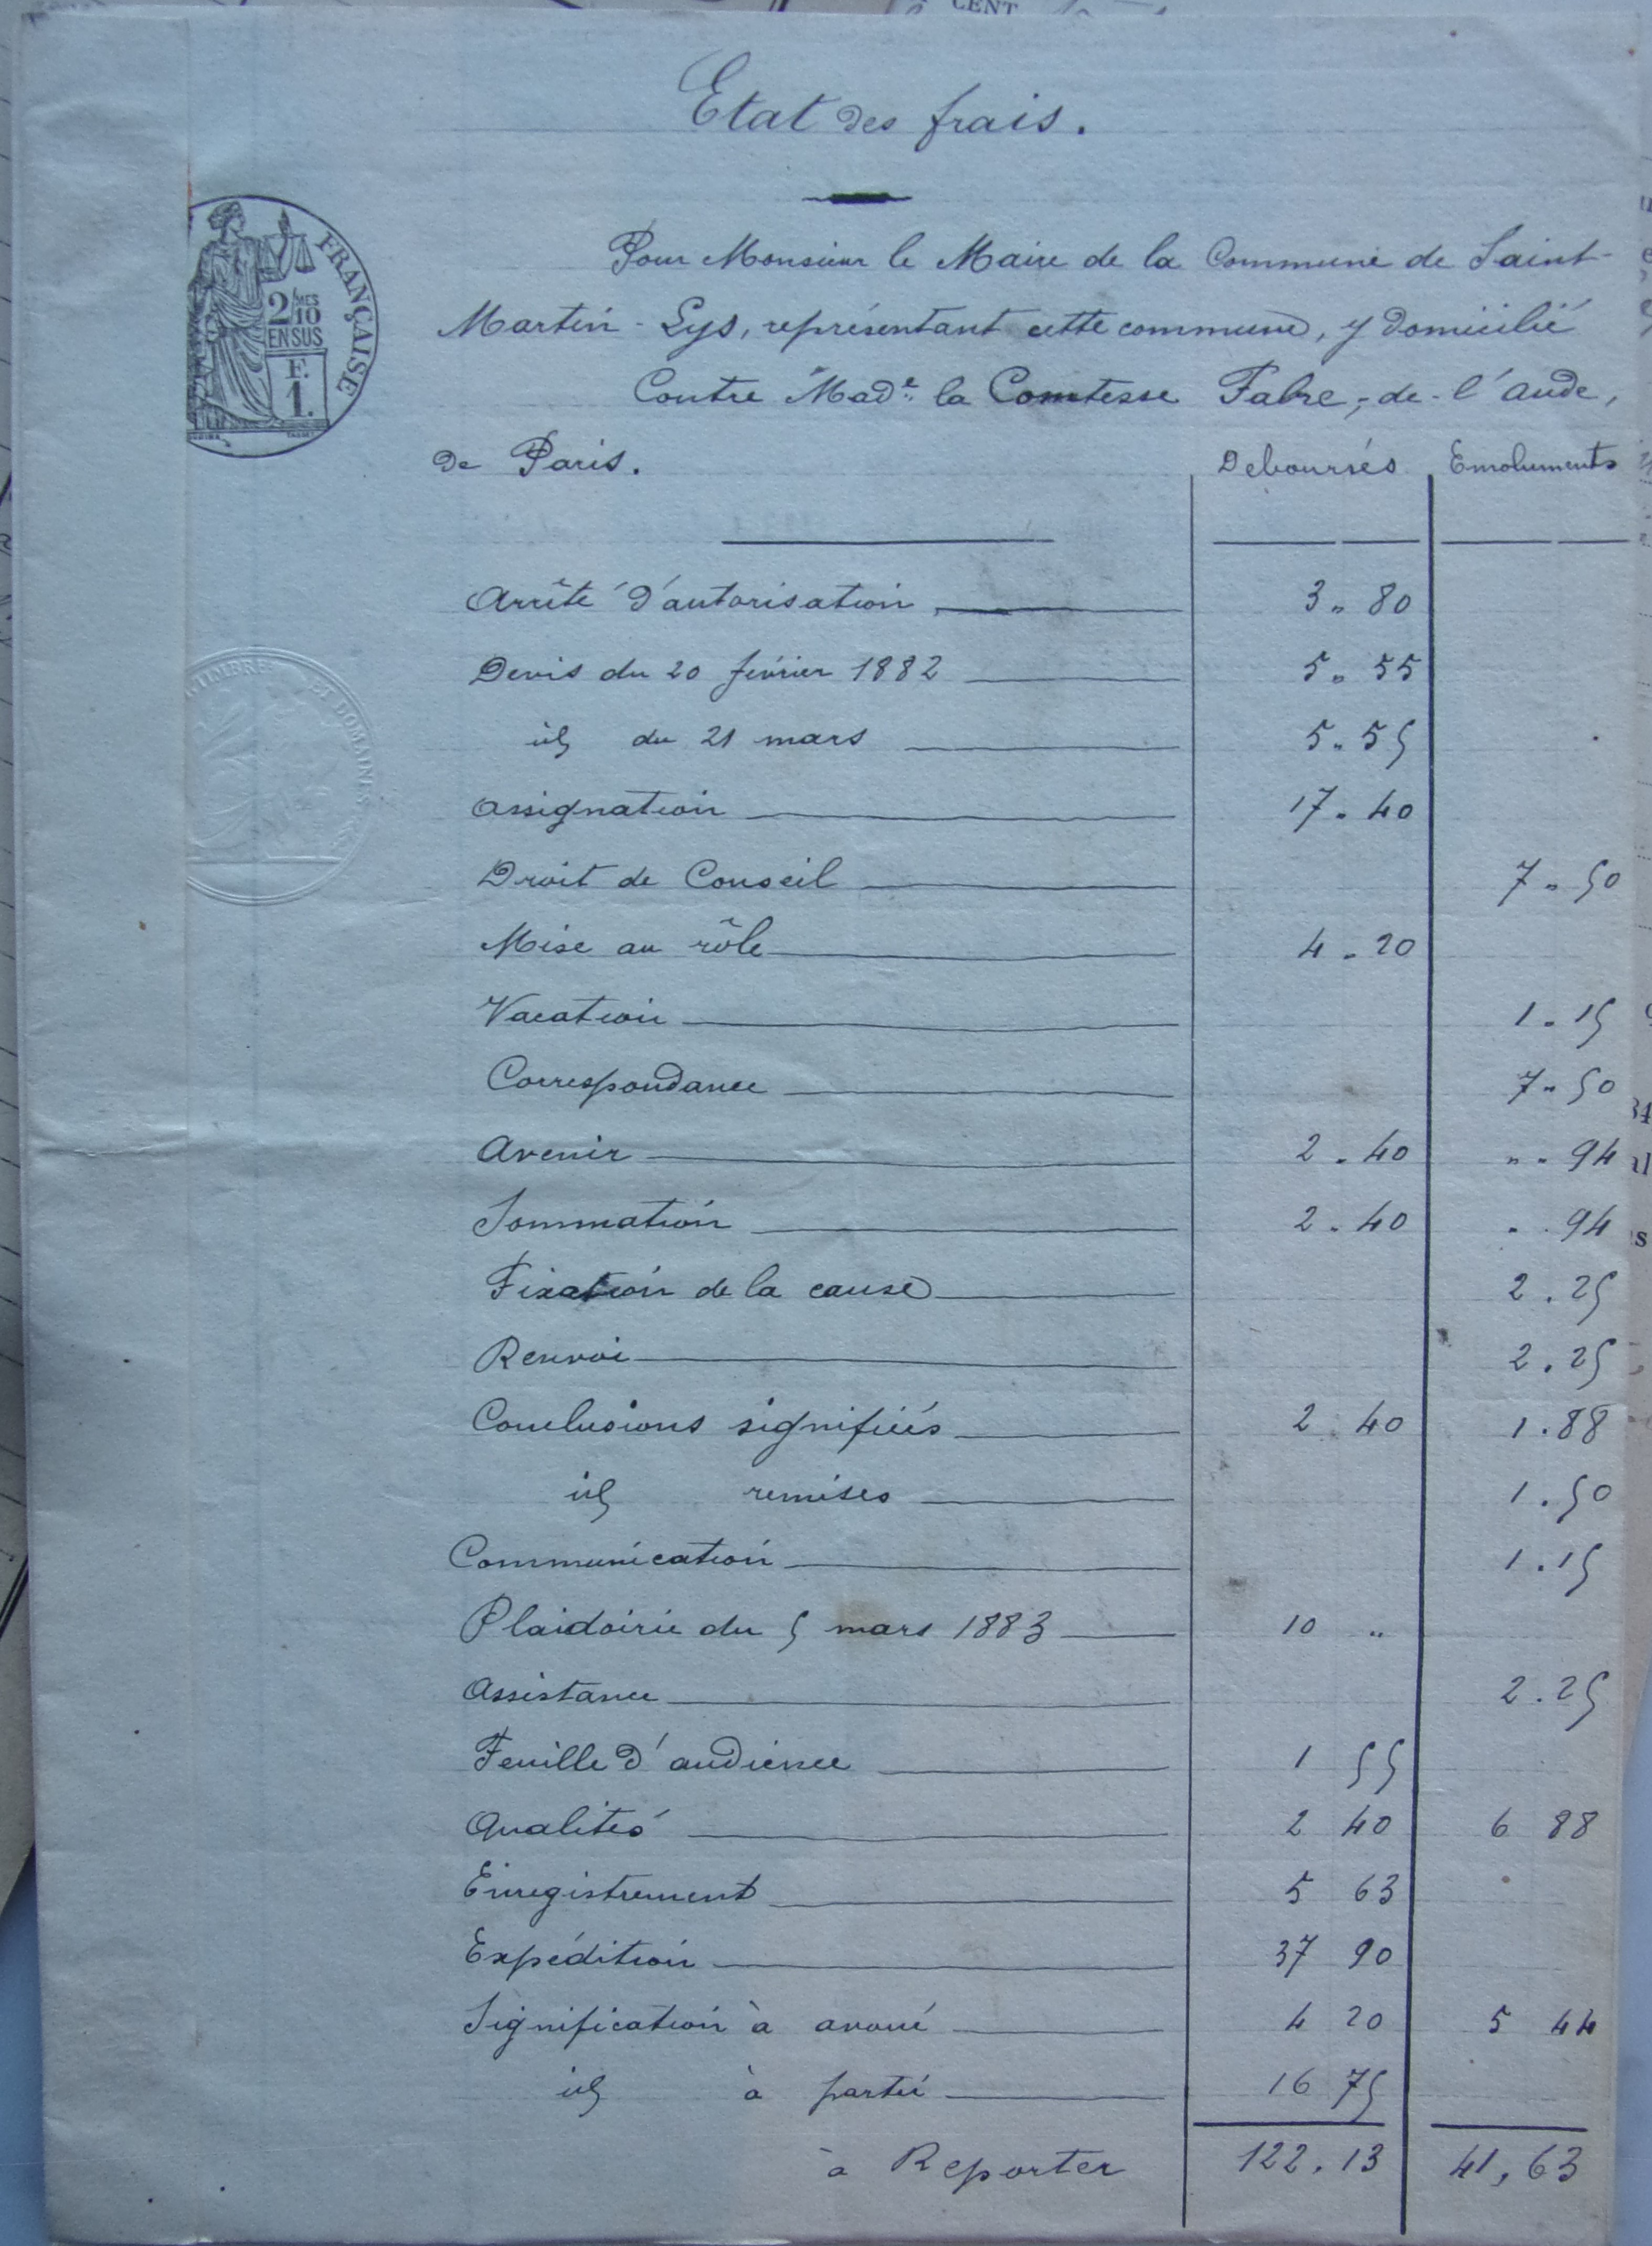 CENT
Etat des frais.
Pour Monsieur le Maire de la Commune de Saint-
Martin-Lys, représentant cette commune, y domicilié
Contre Made la Comtesse Fabre, de l'aude,
de Paris.
Debourses Emoluments
FRANÇAISE
2/10 MES
EN SUS
F.
1.
Arrêté d'autorisation 3 " 80
Devis du 20 février 1882 5 " 55
id du 21 mars 5 " 55
TIMBRE ET DOMAINES
assignation 17 " 40
Droit de Conseil 7 " 50
Mise au rôle 4 " 20
Vacation 1 " 15
Correspondance 7 " 50
Avenir 2 " 40 " " 94
Sommation 2 " 40 " 94
Fixation de la cause 2 . 25
Renvoi 2 . 25
Conclusions signifiées 2 . 40 1 . 88
id remises 1 . 50
Communication 1 . 15
Plaidoirie du 5 mars 1883 10 "
Assistance 2 . 25
Feuille d'audience 1 55
Qualités 2 40 6 88
Enregistrement 5 63
Expédition 37 90
Signification à avoué 4 20 5 44
id à partie 16 75
à Reporter 122,13 41,63